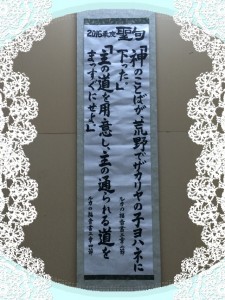 2016年度 聖句
「神のことばが、荒野でザカリヤの子ヨハネに
下った。」
ルカの福音書三章二節
「主の道を用意し、主の通られる道を
まっすぐにせよ。」
ルカの福音書三章四節